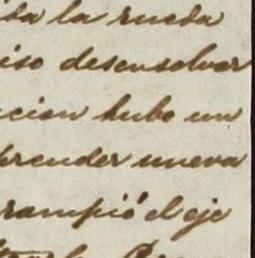 da la rueda
iso desenvolver
cion hubo un
prender nueva
rampió el eje